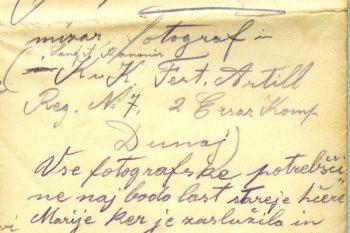 mizar fotograf in
K u K Fest. Artill
Reg. № 7, 2 Ersaz Komp
Dunaj)
Vse fotografske potrebšči
ne naj bodo last stareje hčere
Marije ker je zaslužila in